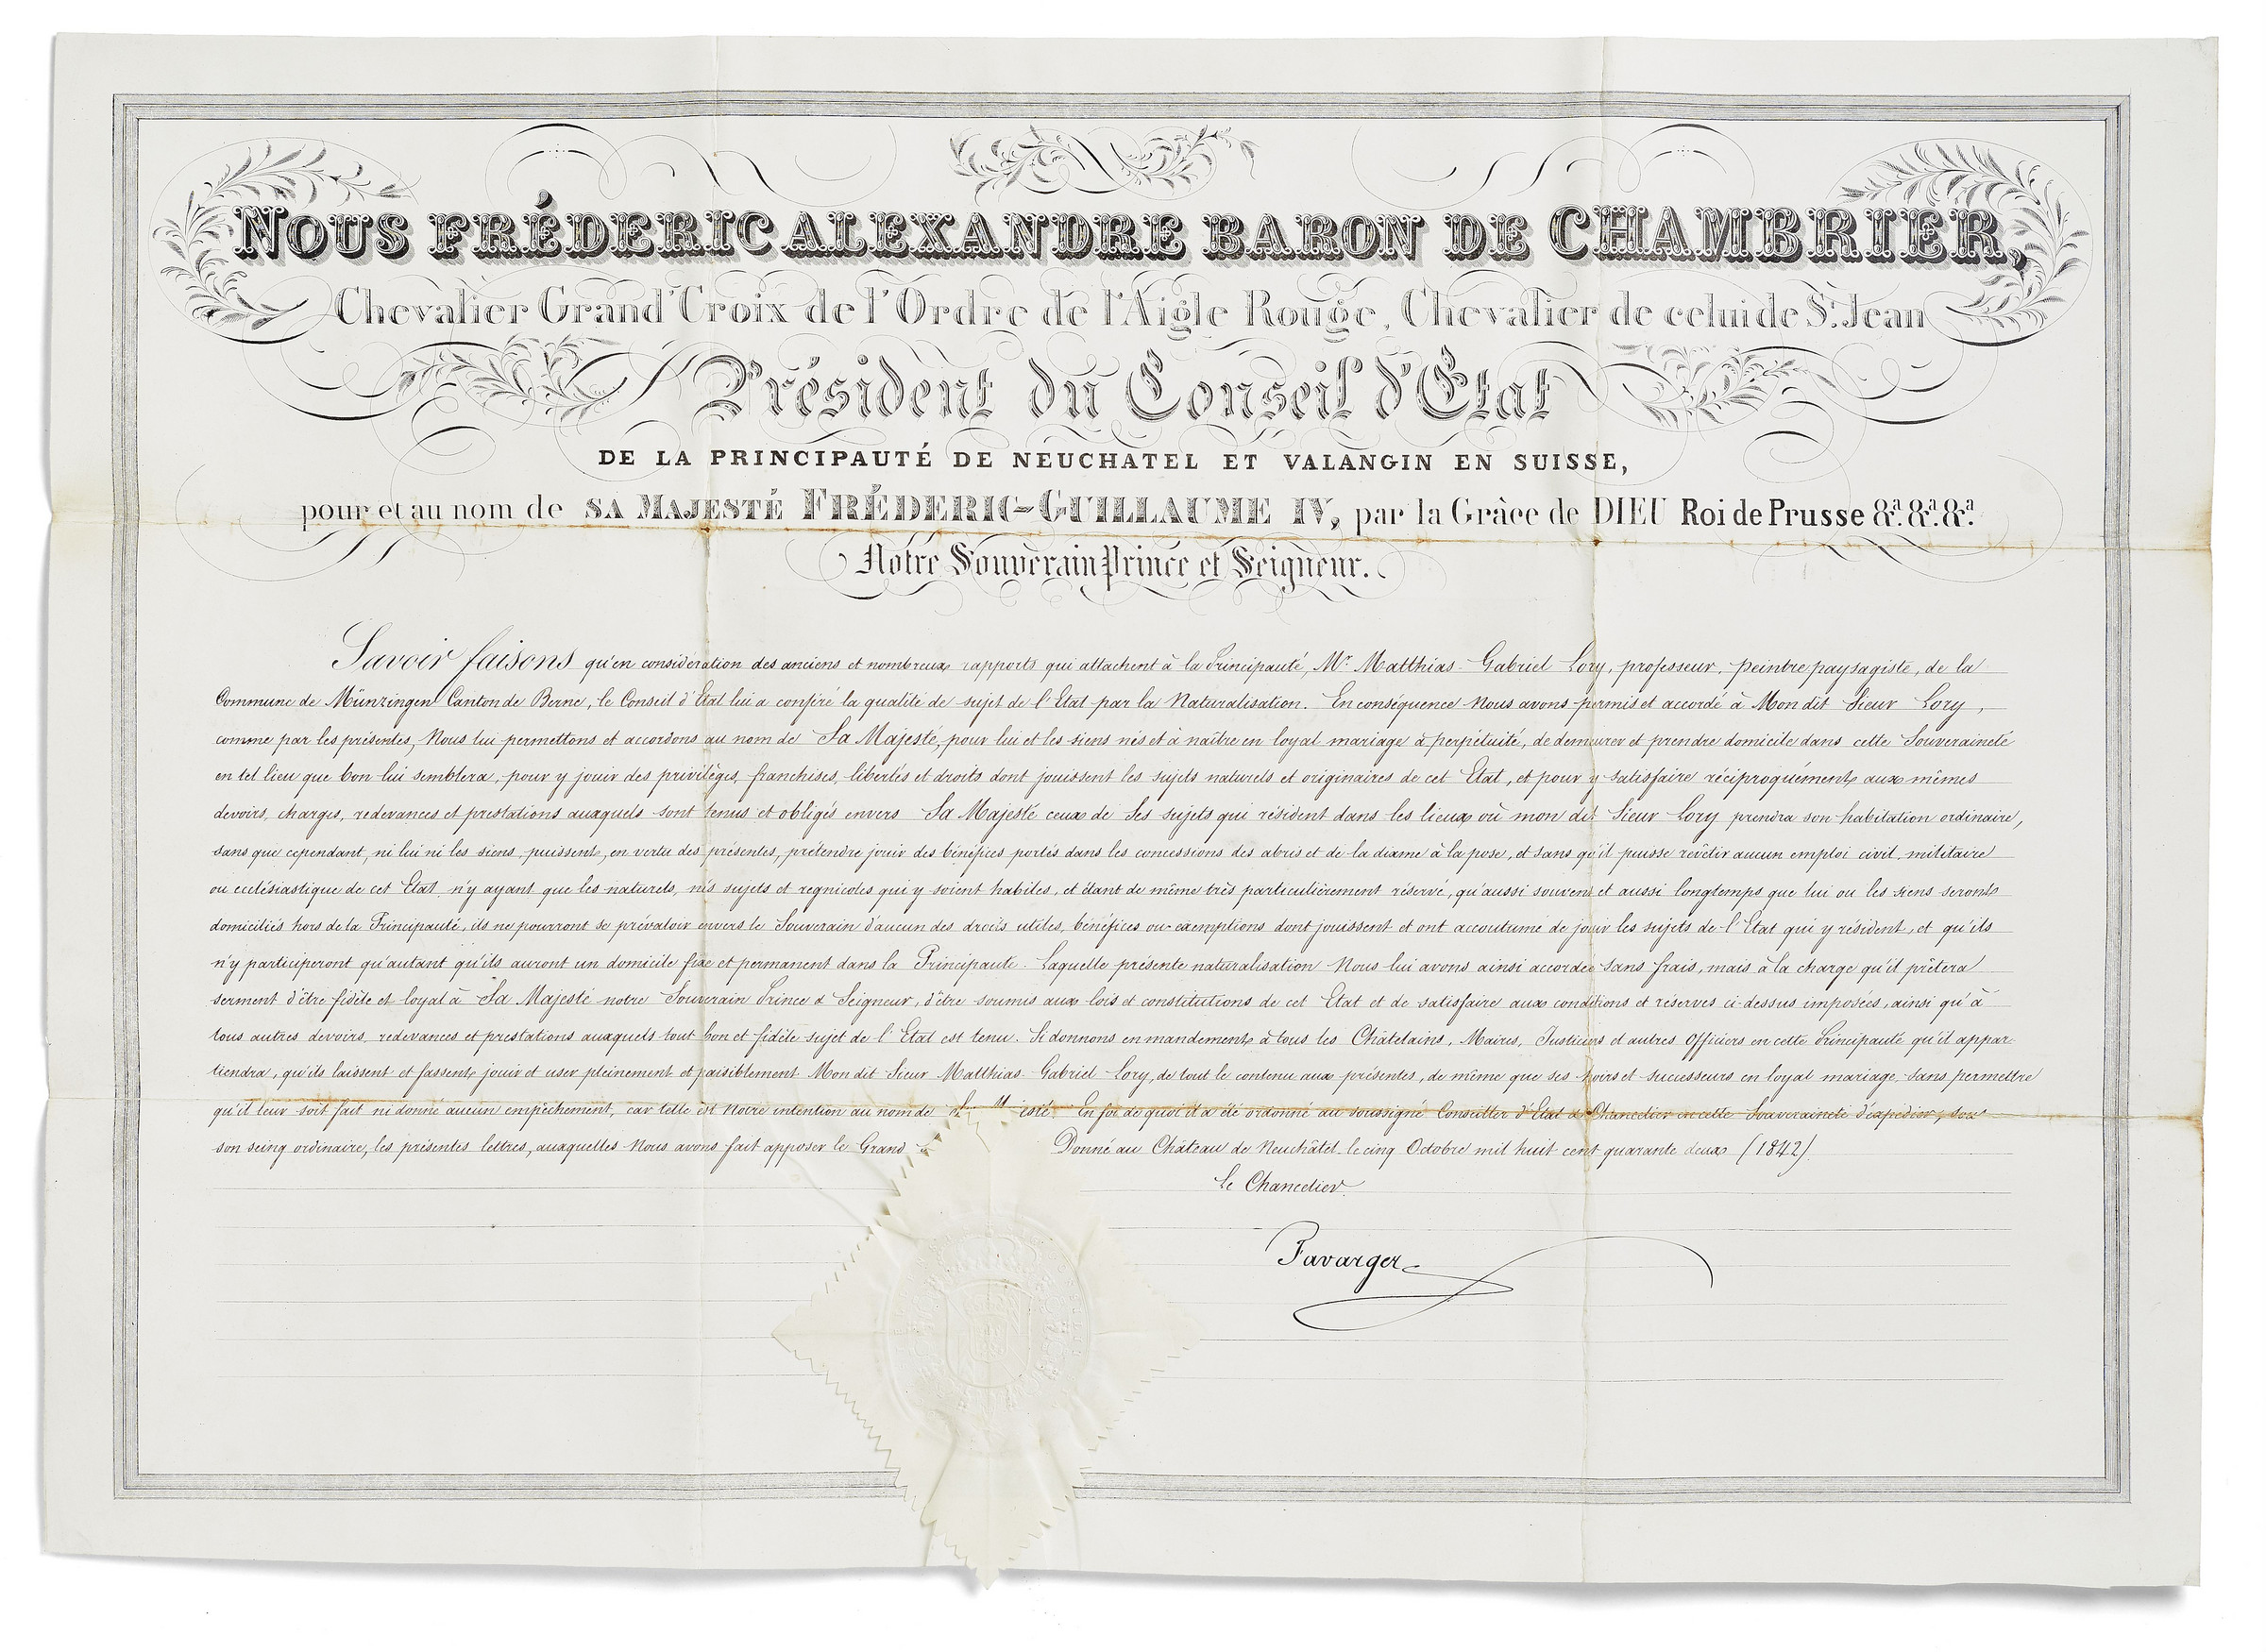 NOUS FRÉDERIC ALEXANDRE BARON DE CHAMBRIER,
Chevalier Grand'Croix de l'Ordre de l'Aigle Rouge, Chevalier de celui de St. Jean
Président du Conseil d'Etat
DE LA PRINCIPAUTÉ DE NEUCHATEL ET VALANGIN EN SUISSE,
pour et au nom de SA MAJESTÉ FRÉDERIC-GUILLAUME IV, par la Grâce de DIEU Roi de Prusse &a. &a. &a.
Notre Souverain Prince et Seigneur.
Savoir faisons qu'en considération des anciens et nombreux rapports qui attachent à la Principauté, Mr. Matthias-Gabriel Lory, professeur, peintre paysagiste, de la
Commune de Münzingen Canton de Berne, le Conseil d'Etat lui a conféré la qualité de sujet de l'Etat par la Naturalisation. En conséquence Nous avons permis et accordé à Mon dit Sieur Lory,
comme par les présentes, Nous lui permettons et accordons au nom de Sa Majesté, pour lui et les siens nés et à naître en loyal mariage à perpétuité, de demeurer et prendre domicile dans cette Souveraineté
en tel lieu que bon lui semblera, pour y jouir des privilèges, franchises, libertés et droits dont jouissent les sujets naturels et originaires de cet Etat, et pour y satisfaire réciproquement aux mêmes
devoirs, charges, redevances et prestations auxquels sont tenus et obligés envers Sa Majesté ceux de Ses sujets qui résident dans les lieux où mon dit Sieur Lory prendra son habitation ordinaire,
sans que cependant, ni lui ni les siens, puissent, en vertu des présentes, prétendre jouir des bénéfices portés dans les concessions des abris et de la dixme à la pose, et sans qu'il puisse revêtir aucun emploi civil, militaire
ou ecclésiastique de cet Etat, n'y ayant que les naturels, nés sujets et regnicoles qui y soient habiles, et étant de même très particulièrement réservé, qu'aussi souvent et aussi longtemps que lui ou les siens seront
domiciliés hors de la Principauté, ils ne pourront se prévaloir envers le Souverain d'aucun des droits utiles, bénéfices ou exemptions dont jouissent et ont accoutumé de jouir les sujets de l'Etat qui y résident, et qu'ils
n'y participeront qu'autant qu'ils auront un domicile fixe et permanent dans la Principauté. Laquelle présente naturalisation Nous lui avons ainsi accordée sans frais, mais à la charge qu'il prêtera
serment d'être fidèle et loyal à Sa Majesté notre Souverain Prince & Seigneur, d'être soumis aux lois et constitutions de cet Etat et de satisfaire aux conditions et réserves ci-dessus imposées, ainsi qu'à
tous autres devoirs, redevances et prestations auxquels tout bon et fidèle sujet de l'Etat est tenu. Si donnons en mandement à tous les Châtelains, Maires, Justiciers et autres Officiers en cette Principauté qu'il appar-
tiendra, qu'ils laissent et fassent jouir et user pleinement et paisiblement Mon dit Sieur Matthias-Gabriel Lory, de tout le contenu aux présentes, de même que ses hoirs et successeurs en loyal mariage, sans permettre
qu'il leur soit fait ni donné aucun empêchement, car telle est Notre intention au nom de En foi de quoi il a été ordonné au soussigné Conseiller d'Etat & Chancelier en cette Souveraineté d'expédier, sous
son seing ordinaire, les présentes lettres, auxquelles Nous avons fait apposer le Grand Donné au Château de Neuchâtel le cinq Octobre mil huit cent quarante deux (1842).
Le Chancelier
Favarger